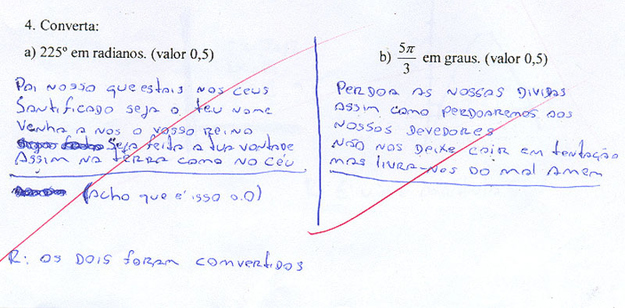 4. Converta:
a) 225º em radianos. (valor 0,5)
Pai nosso que estais nos ceus
Santificado seja o teu nome
Venha a nos o vosso Reino
Seja feita a tua vontade
Assim na terra como no céu
(Acho que é isso o.o)
b) 5π/3 em graus. (valor 0,5)
Perdoa as nossas dividas
assim como perdoaremos aos
nossos devedores
não nos deixe cair em tentação
mas livra-nos do mal amem
R: os dois foram convertidos